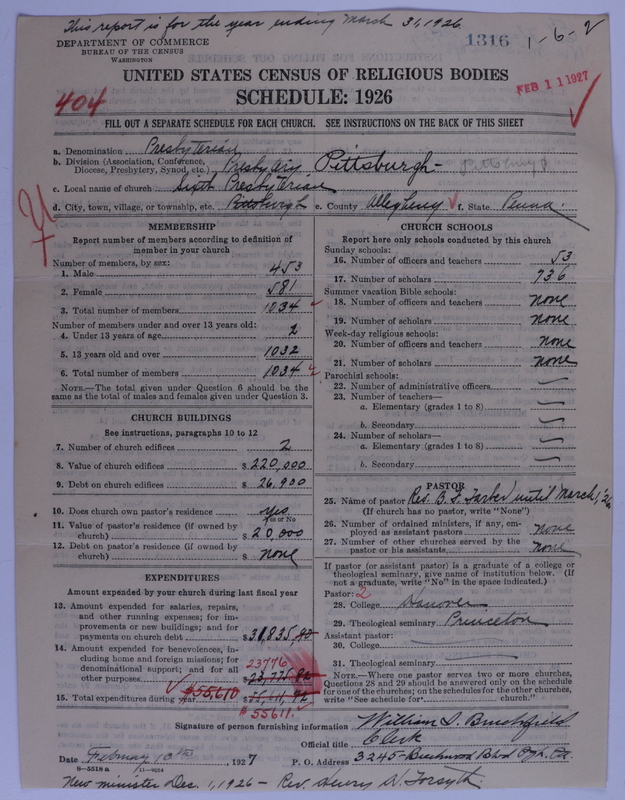 This report is for the year ending March 31, 1926.
DEPARTMENT OF COMMERCE
BUREAU OF THE CENSUS
WASHINGTON
1316 1-6-2
UNITED STATES CENSUS OF RELIGIOUS BODIES
SCHEDULE: 1926
404
FEB 11 1927
FILL OUT A SEPARATE SCHEDULE FOR EACH CHURCH. SEE INSTRUCTIONS ON THE BACK OF THIS SHEET
a. Denomination Presbyterian
b. Division (Association, Conference, Diocese, Presbytery, Synod, etc.) Presbytery Pittsburgh - Pittsburgh
c. Local name of church Sixth Presbyterian
d. City, town, village, or township, etc. Pittsburgh e. County Allegheny f. State Penna.
MEMBERSHIP
Report number of members according to definition of
member in your church
Number of members, by sex:
1. Male 453
2. Female 581
3. Total number of members 1034
Number of members under and over 13 years old:
4. Under 13 years of age 2
5. 13 years old and over 1032
6. Total number of members 1034
NOTE.—The total given under Question 6 should be the
same as the total of males and females given under Question 3.
CHURCH BUILDINGS
See instructions, paragraphs 10 to 12
7. Number of church edifices 2
8. Value of church edifices $220,000
9. Debt on church edifices $26,900
10. Does church own pastor's residence yes
Yes or No
11. Value of pastor's residence (if owned by
church) $20,000
12. Debt on pastor's residence (if owned by
church) $none
EXPENDITURES
Amount expended by your church during last fiscal year
13. Amount expended for salaries, repairs,
and other running expenses; for im-
provements or new buildings; and for
payments on church debt $31,835
14. Amount expended for benevolences, in-
cluding home and foreign missions; for
denominational support; and for all
other purposes 23776
15. Total expenditures during year $55,610
$55611
CHURCH SCHOOLS
Report here only schools conducted by this church
Sunday schools:
16. Number of officers and teachers 53
17. Number of scholars 736
Summer vacation Bible schools:
18. Number of officers and teachers none
19. Number of scholars none
Week-day religious schools:
20. Number of officers and teachers none
21. Number of scholars none
Parochial schools:
22. Number of administrative officers
23. Number of teachers—
a. Elementary (grades 1 to 8)
b. Secondary
24. Number of scholars—
a. Elementary (grades 1 to 8)
b. Secondary
PASTOR
25. Name of pastor Rev. B. F. Farber until March 1, '26
(If church has no pastor, write "None")
26. Number of ordained ministers, if any, em-
ployed as assistant pastors none
27. Number of other churches served by the
pastor or his assistants none
If pastor (or assistant pastor) is a graduate of a college or
theological seminary, give name of institution below. (If
not a graduate, write "No" in the space indicated.)
Pastor: 2
28. College Hanover
29. Theological seminary Princeton
Assistant pastor:
30. College
31. Theological seminary
NOTE.—Where one pastor serves two or more churches,
Questions 28 and 29 should be answered only on the schedule
for one of the churches; on the schedules for the other churches,
write "See schedule for church."
Signature of person furnishing information William S.
Official title Clerk
Date February 10th 1927 P. O. Address 3245 Beechwood Blvd Pgh. Pa.
8—5518 a
New minister Dec. 1, 1926 - Rev. Henry W. Forsyth